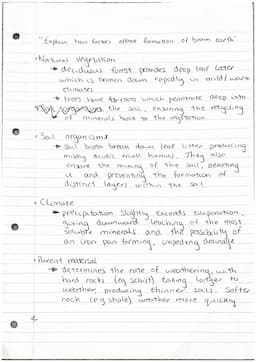 "Explain how factors affect formation of brown earth"
• Natural vegetation
→ deciduous forest provides deep leaf litter
which is broken down rapidly in mild/warm
climates
→ trees have tap roots which penetrate deep into
the soil, ensuring the recycling
of minerals back to the vegetation
• Soil organisms
→ Soil biota break down leaf litter producing
mildly acidic mull humus. They also
ensure the mixing of the soil, aerating
it and preventing the formation of
distinct layers within the soil
• Climate
→ precipitation slightly exceeds evaporation,
giving downward leaching of the most
soluble minerals and the possibility of
an iron pan forming, impeding drainage
• Parent material
→ determines the rate of weathering, with
hard rocks (eg schist) taking longer to
weather, producing thinner soils. Softer
rock (eg shale) weather more quickly